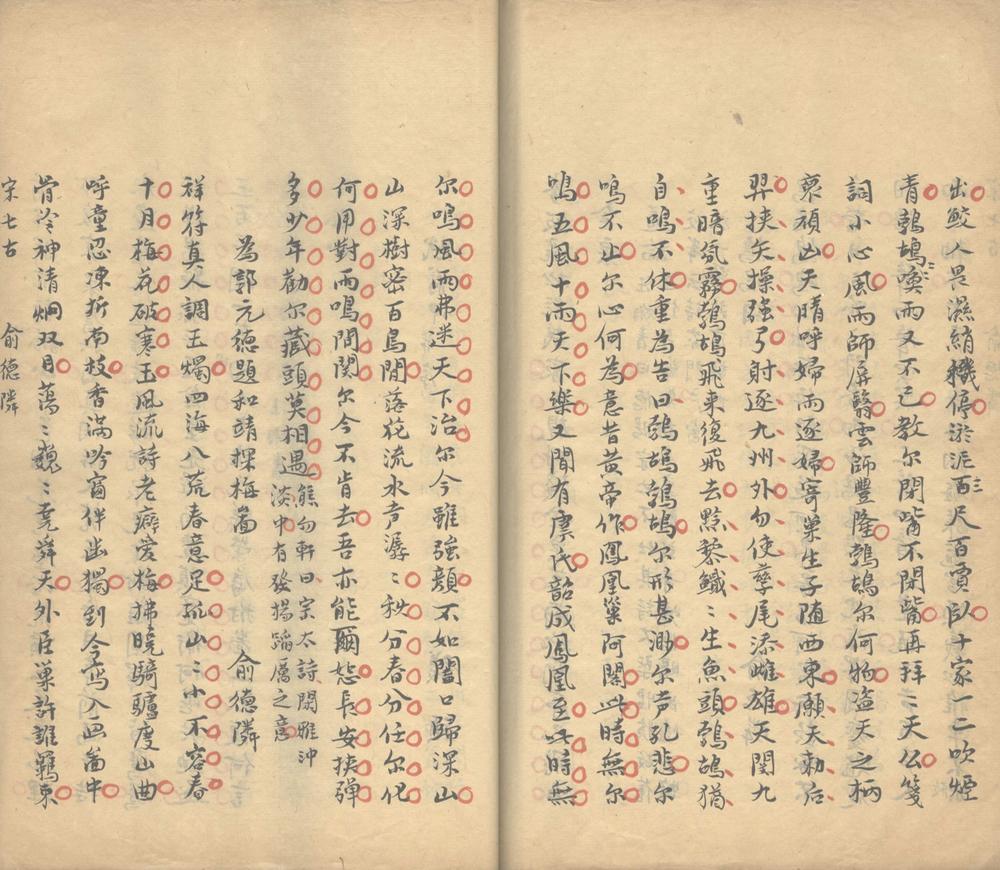 出鮫人畏濕綃機停淤泥三百尺百賈臥十家一二吹煙
青鵓鴣喚雨又不已教尔閉觜不閉觜再拜〻天公箋
詞小心風雨師屏翳雲師豐隆鵓鴣尔何物盜天之柄
衷禎凶天隋呼婦而逐婦寄巢生子随西東願天勅后
羿挾矢操強弓射逐九州外勿使孽尾添雌雄天閽九
重暗氛霧鵓鴣飛来復飛去黔黎鱵〻生魚頭鵓鴣猶
自鳴不休重為告曰鵓鴣鵓鴣尔形甚渺尔声孔悲尔
鳴不止尔心何為意昔黄帝作鳳凰巢阿閣此時無尔
鳴五風十雨天下樂又聞有虞氏韶成鳳凰至此時無
尔鳴風雨弗迷天下治尔今雖強顏不如闔口歸深山
山深樹密百鳥閒落花流水声潺〻秋分春分任尔化
何用對雨鳴間関尔今不肯去吾亦能爾恕長安挾彈
多少年勸尔藏頭莫相遇 熊勿軒曰宗太詩閑雅沖
淡中有發揚蹈厲之意
為郭元德題和靖探梅畵 俞德隣
祥符真人調玉燭四海八荒春意足孤山〻小不容春
十月梅花破寒玉風流詩老癖愛梅拂曉騎驢度山曲
呼童忍凍折南枝香滿吟窗伴幽獨到今寫入画畵中
骨冷神清炯双目蕩〻巍〻堯舜天外臣巢許誰羈束
宋七古 俞德隣